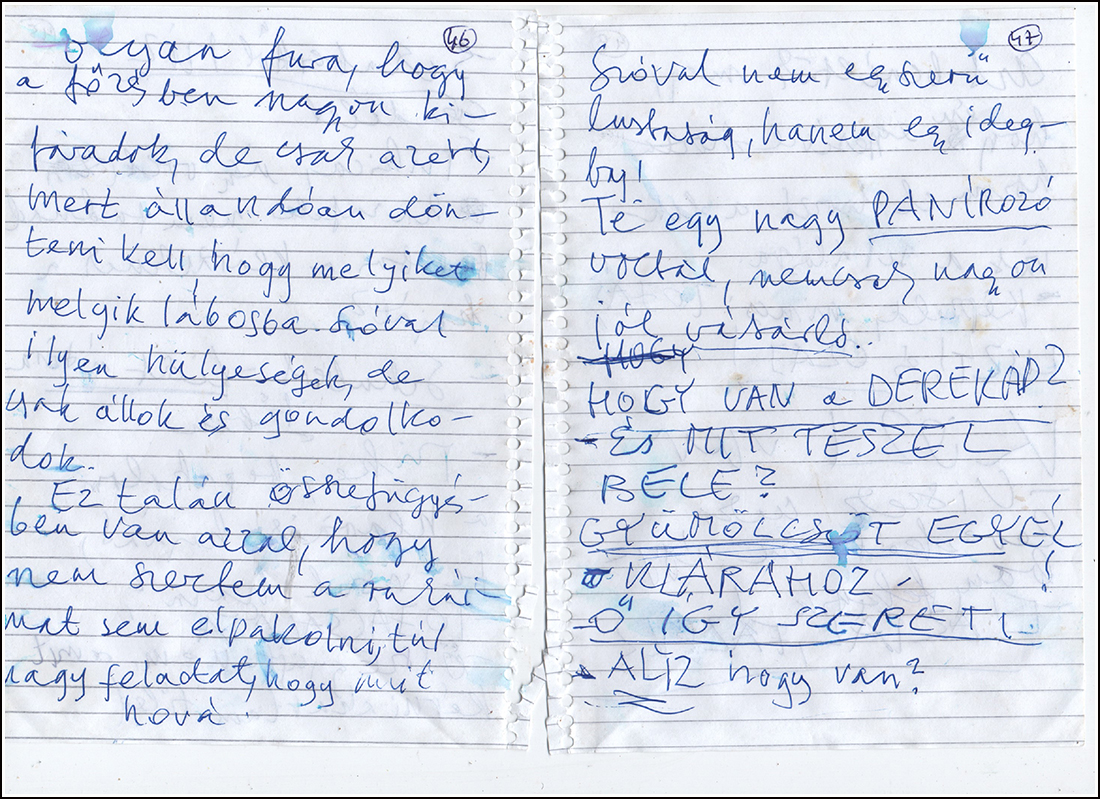 46
Olyan fura, hogy
a főzésben nagyon ki-
fáradok, de csak azért,
mert állandóan dön-
teni kell, hogy melyiket
melyik lábosba. Szóval
ilyen hülyeségek, de
csak állok és gondolko-
dok.
Ez talán összefüggés-
ben van azzal, hogy
nem szertem a ruhái-
mat sem elpakolni, túl
nagy feladat, hogy mit
hová.
47
Szóval nem egyszerű
lustaság, hanem egy ideg-
baj!
Te egy nagy PANÍROZÓ
voltál, nemcsak nagyon
jól vásárló..
HOGY
HOGY VAN a DEREKAD?
- ÉS MIT TESZEL
BELE?
GYÜMÖLCSÖT EGYÉL
- KLÁRÁHOZ - !
- Ő IGY SZERETI
- ALÍZ hogy van?